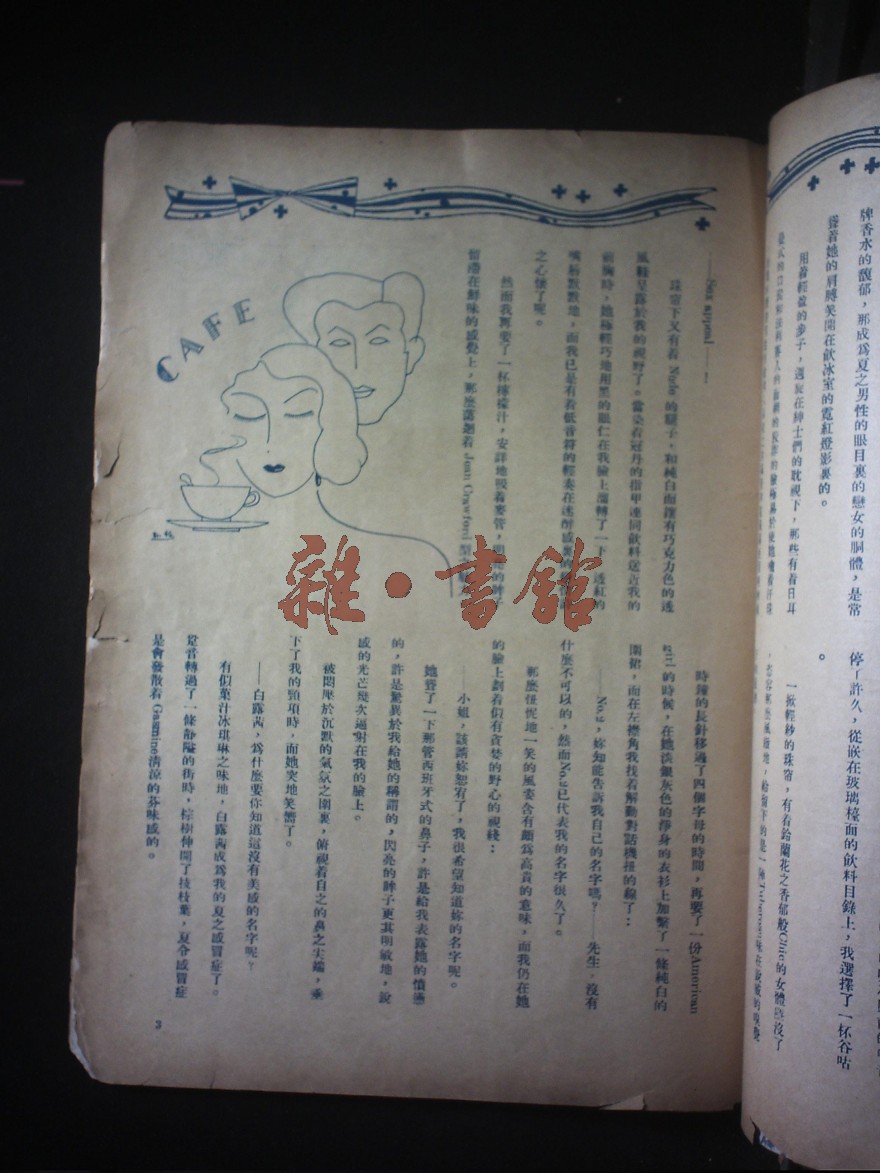 牌香水的馥郁，那成為夏之男性的眼目裏的戀女的胴體，是常
聳着她的肩膊笑開在飲冰室的霓紅燈影裏的。
用着輕盈的步子，迴旋在紳士們的耽視下，那些有着日耳
停了許久，從嵌在玻璃檯面的飲料目錄上，我選擇了一杯谷咕
。
一掀輕紗的珠帘，有着鈴蘭花之香郁般Chic的女體隱沒了
——Sex appeal——！
珠帘下又有着 Nude 的腿子，和純白而鑲有巧克力色的透
風鞋呈露於我的視野了。當染着冠丹的指甲連同飲料送占我的
前胸時，她極輕巧地用黑的眼仁在我臉上溜轉了一下，透紅的
嘴唇默默地，而我已是有着低音符的輕奏在迷醉感裏的
之心臟了呢。
然而我再要了一杯檸檬汁，安詳地吸着麥管，
留滯在鮮味的感覺上，那麼蕩迴着 Joan Crawford 型
CAFE
時鐘的長針移過了四個字母的時間，再要了一份American
的時候，在她淡銀灰色的淨身的衣衫上加繫了一條純白的
圍裙，而在左襟角我找着解動對話機扭的線了：
——No.9，妳知能告訴我自己的名字嗎？——先生，沒有
什麼不可以的，然而No.9已代表我的名字很久了。
那麼忸怩地一笑的風姿含有頗為高貴的意味，而我仍在她
的臉上刻着似有貪婪的野心的視綫：
——小姐，該請妳恕宥了，我很希望知道妳的名字呢。
她聳了一下那管西班牙式的鼻子，許是給我表露她的憤懣
的，許是驚異於我給她的稱謂的，閃亮的眸子更其明敏地，說
感的光芒幾次逼射在我的臉上。
被悶壓於沉默的氣氛之圍裏，俯視着自之的鼻之尖端，垂
下了我的頸項時，而她突地笑嚮了。
——白露茜，為什麼要你知道這沒有美感的名字呢？
有似菓汁冰琪琳之味地，白露茜成為我的夏之感冒症了。
跫音轉過了一條靜隘的街時，棕樹伸開了枝枝葉，夏令感冒症
是會發散着 Gasmine清涼的芬味感的。
3
雜·書館